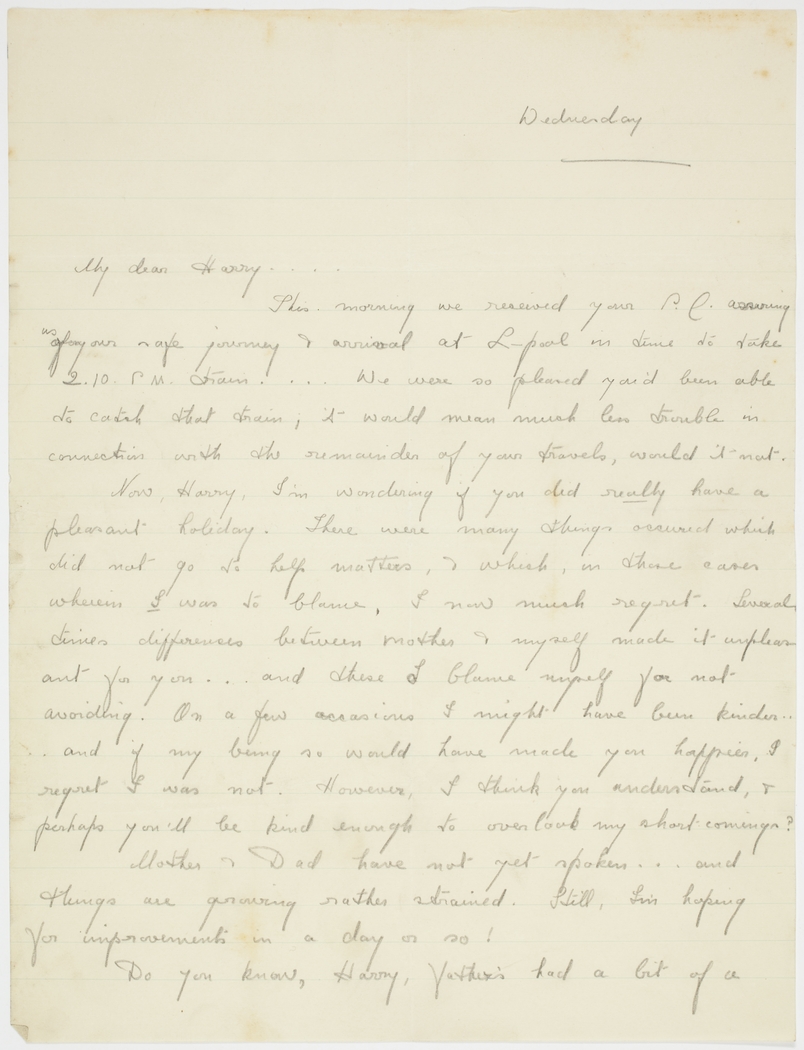 Wednesday
My dear Harry. . . .
This morning we received your P.C. assuring
us of your safe journey & arrival at L-pool in time to take
2.10 P.M. train. . . . We were so pleased you'd been able
to catch that train; it would mean much less trouble in
connection with the remainder of your travels, would it not.
Now, Harry, I'm wondering if you did really have a
pleasant holiday. There were many things occured which
did not go to help matters, & which, in those cases
wherein I was to blame, I now much regret. Several
times differences between mother & myself made it unpleas
ant for you . . . and these I blame myself for not
avoiding. On a few occasions I might have been kinder..
. and if my being so would have made you happier, I
regret I was not. However, I think you understand, &
perhaps you'll be kind enough to overlook my short-comings?
Mother & Dad have not yet spoken . . . and
things are growing rather strained. Still, I'm hoping
for improvements in a day or so!
Do you know, Harry, father's had a bit of a